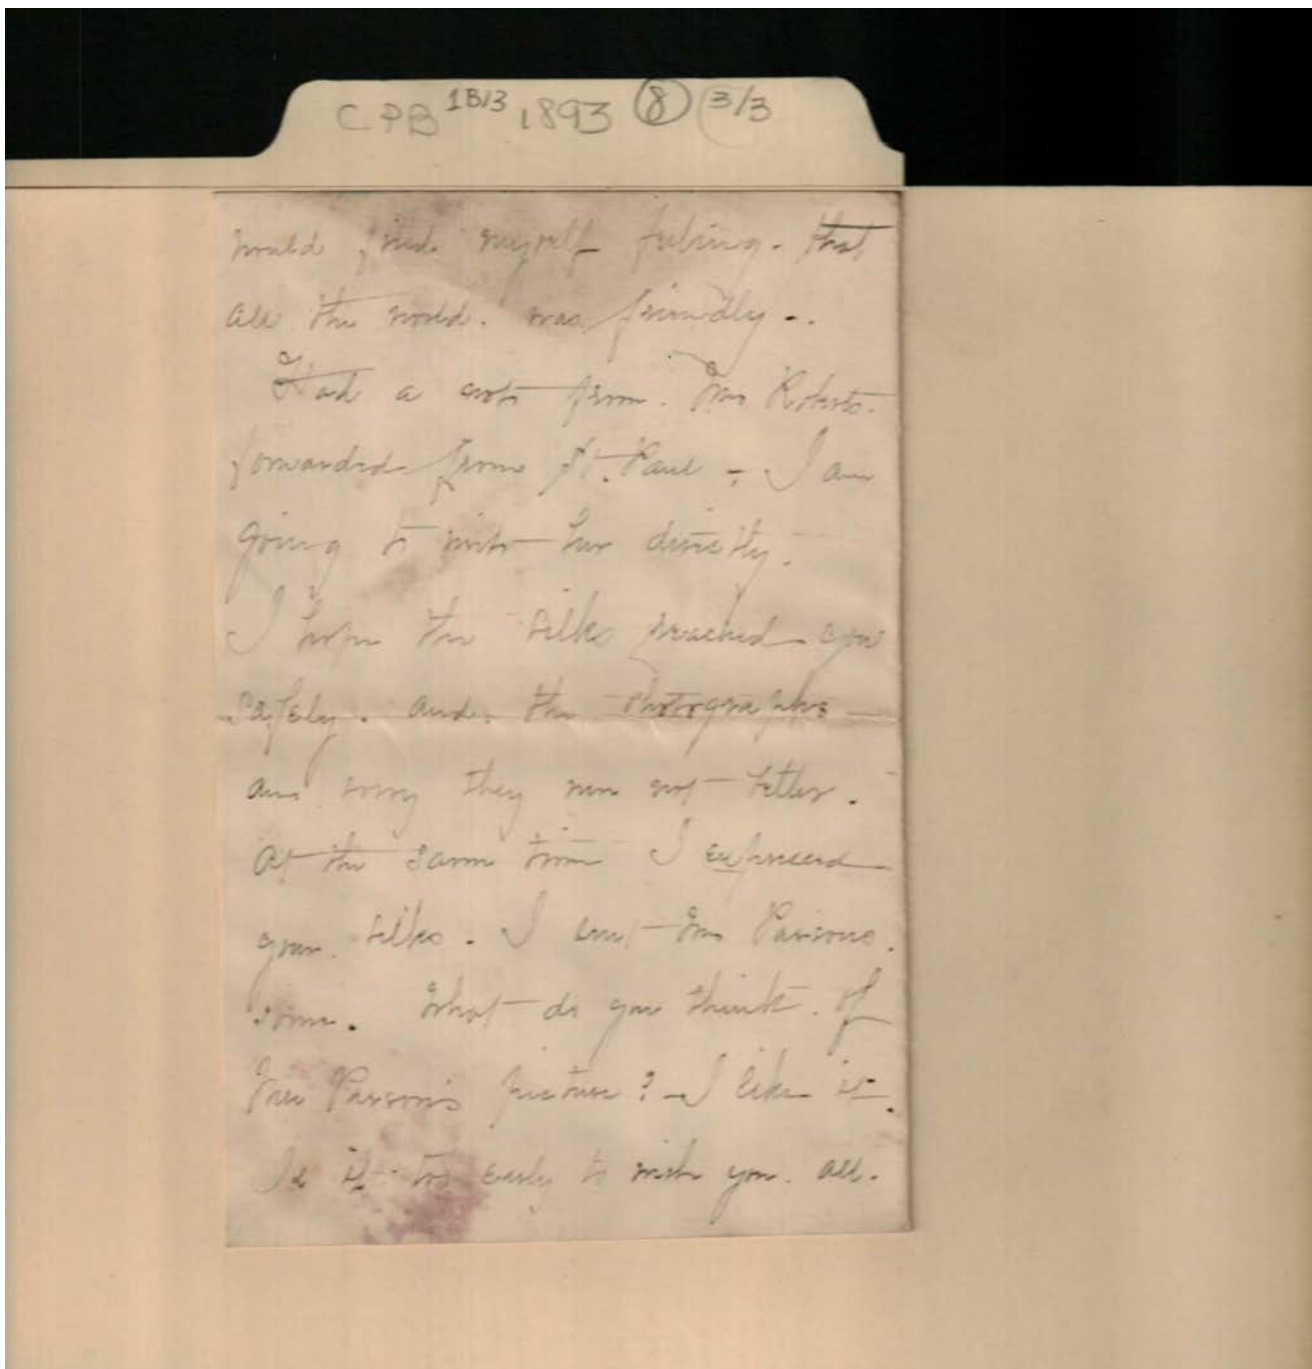 CPB 1B13 1893 8 3/3
would find myself feeling. that
all the world. was friendly -.
Had a note from. Mrs Roberts.
forwarded from St. Paul - I am
going to write her directly.
I hope the silks reached you
safely. and. the photographs
am sorry they were not better.
At the same time I expressed
your. silks. I sent Mrs Parsons.
some. What do you think. of
Mrs Parson's picture? - I like it.
Is it too early to wish you. all.